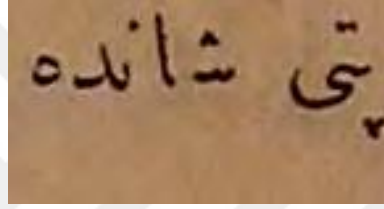 پتی شانده